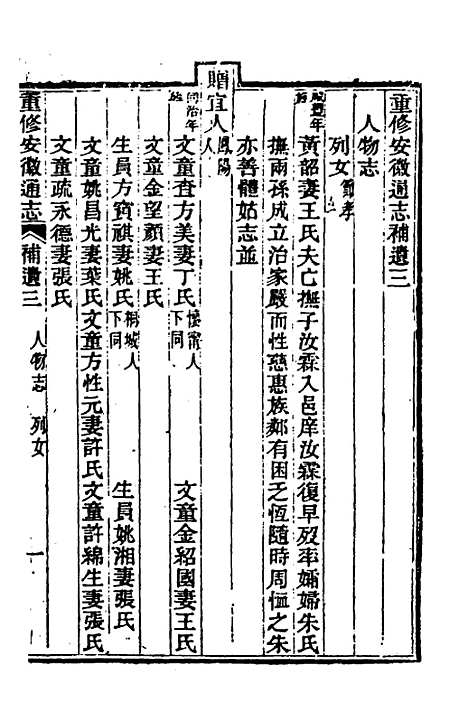 重修安徽通志補遺三
人物志
列女 節孝三
咸豐年 黃韶妻王氏夫亡撫子汝霖入邑庠汝霖復早歿率孀婦朱氏
撫兩孫成立治家嚴而性慈惠族鄰有困乏恆隨時周恤之朱
亦善體姑志並
贈宜人鳳陽人
同治年 文童查方美妻丁氏懷甯人下同 文童金紹國妻王氏
文童金望顏妻王氏
生員方寶祺妻姚氏桐城人下同 生員姚湘妻張氏
文童姚昌光妻葉氏 文童方性元妻許氏 文童許綿生妻張氏
文童疏永德妻張氏
重修安徽通志 補遺三 人物志 列女 一